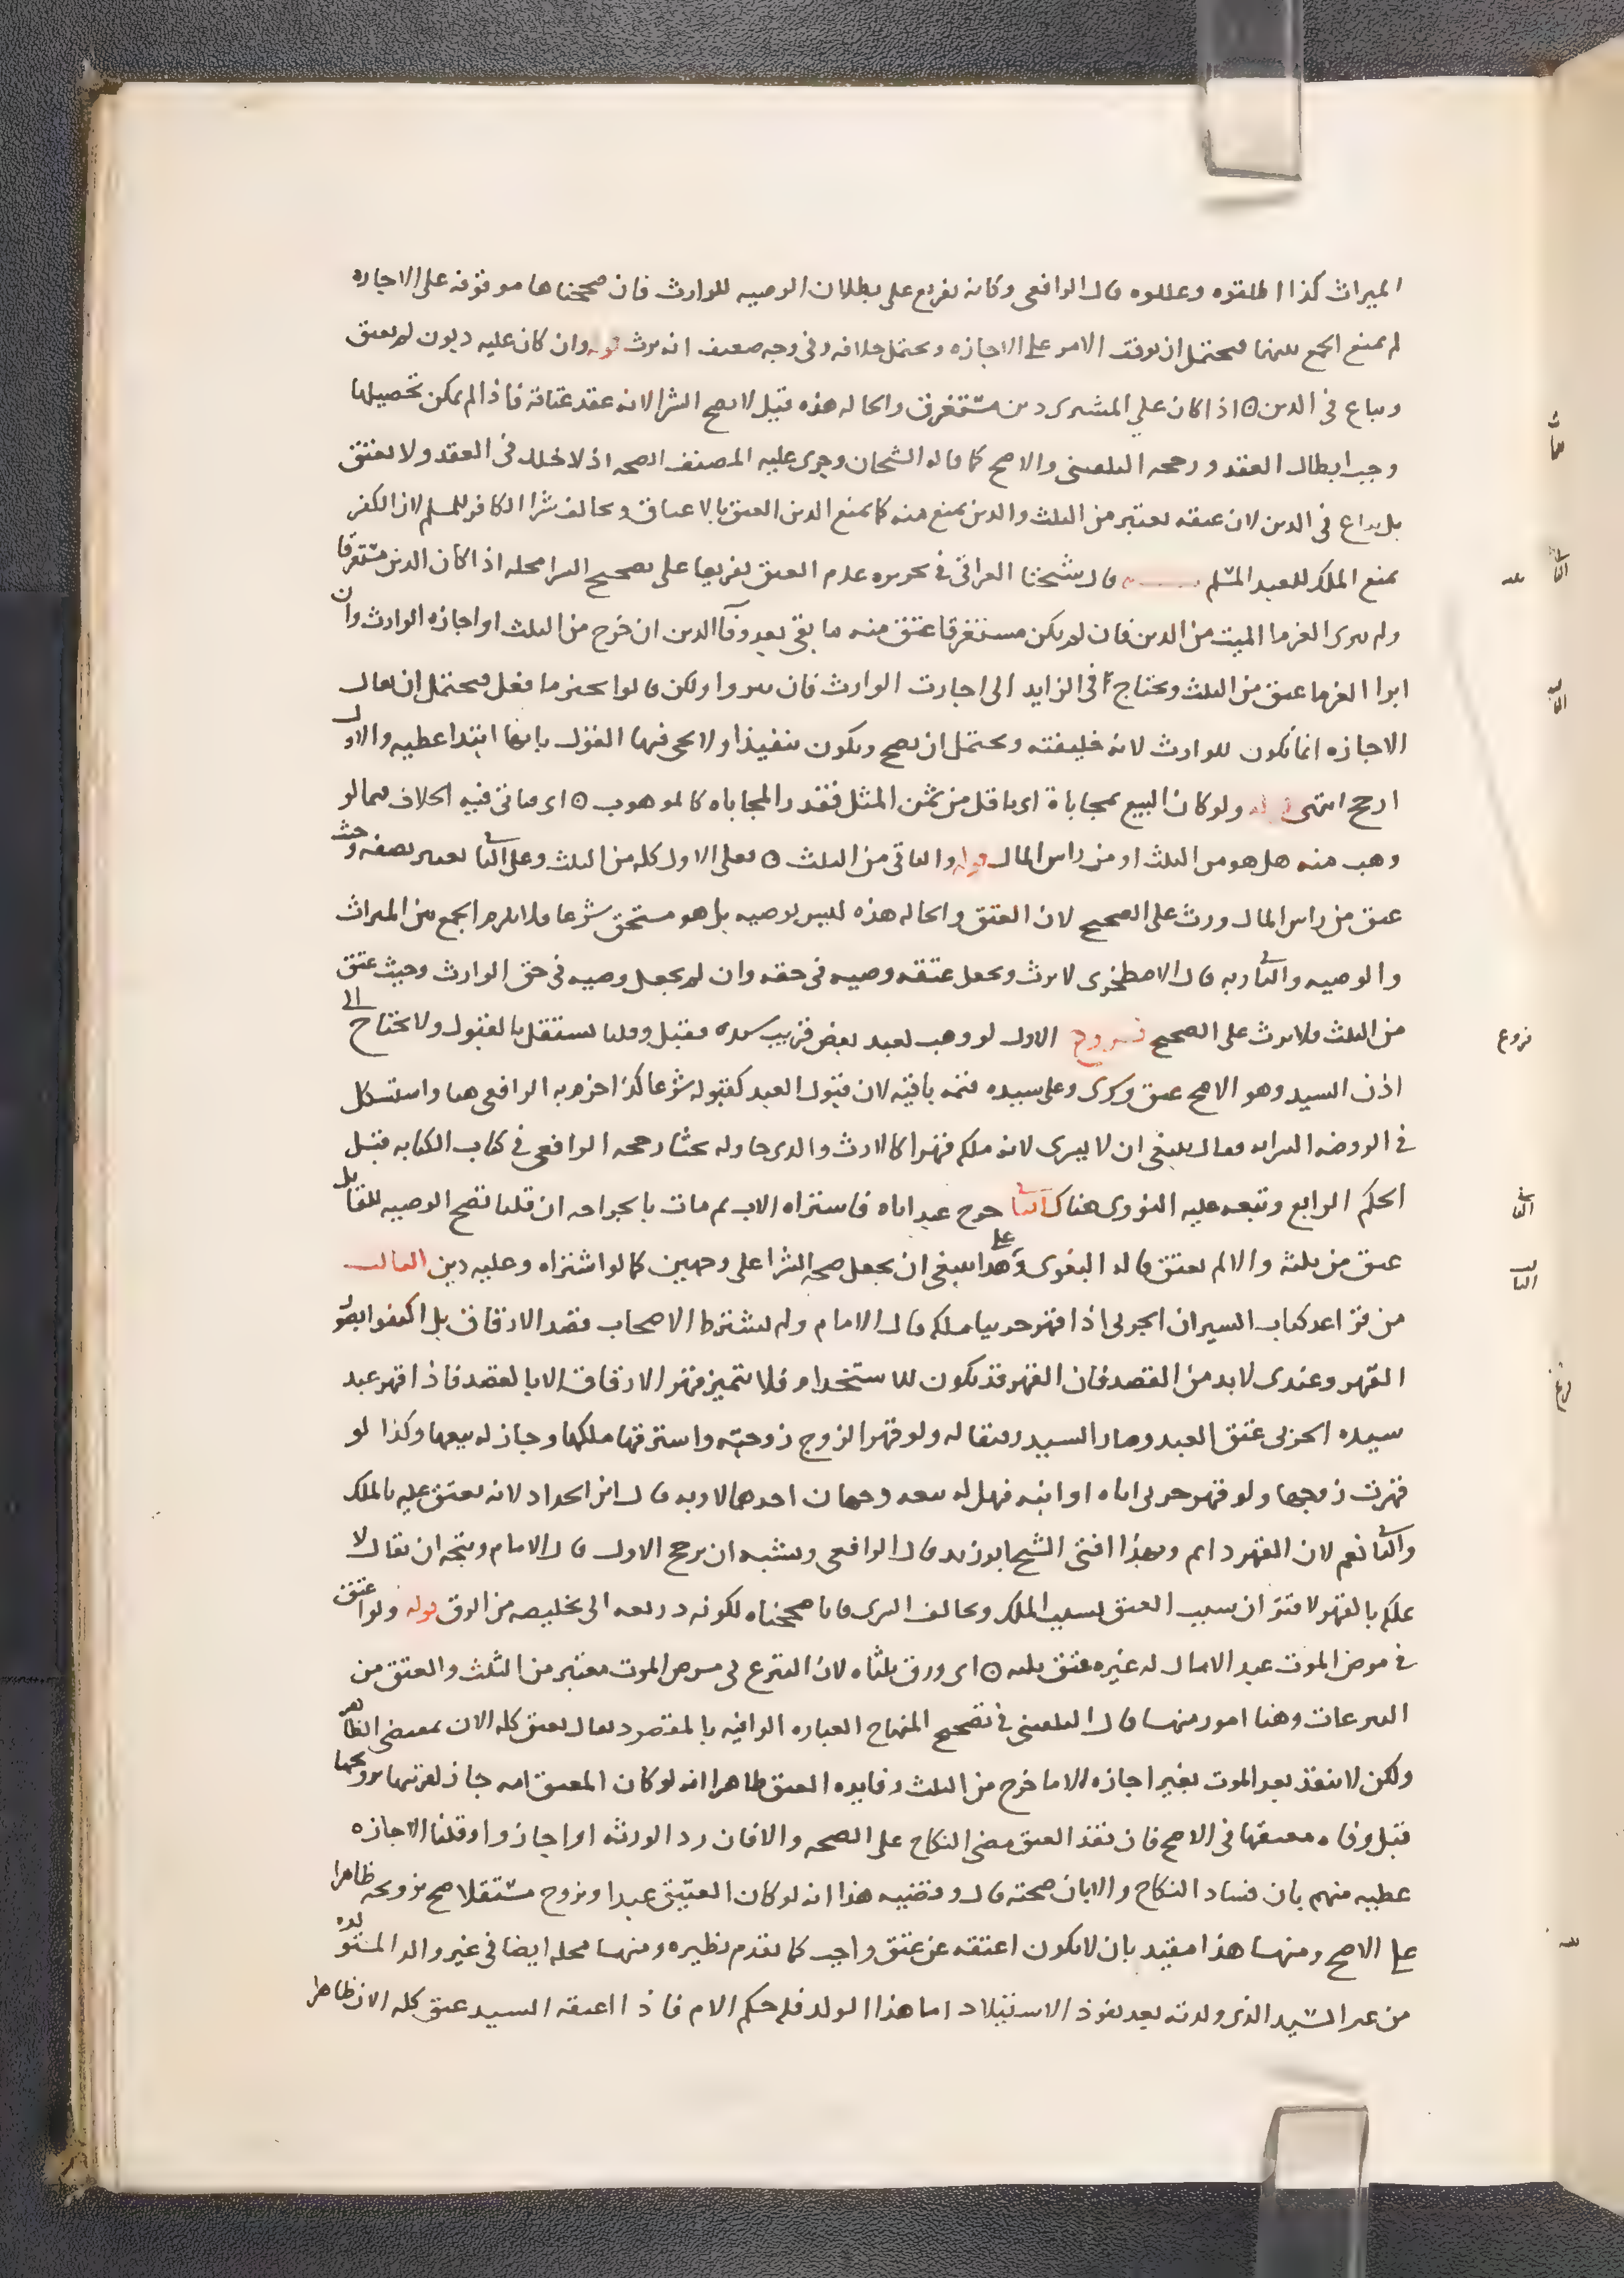 الميراث كذا اطلقوه وعللوه قال الرافعي وكانه تفريع على بطلان الوصيه للوارث فان صححناها موقوفه على الاجازه
لم يمتنع الجمع بينهما فيحتمل ان يوقف الامر على الاجازه ويحتمل خلافه وفي وجه ضعيف انه يرث قوله وان كان عليه ديون لم يعتق
ويباع في الدين ۞ اذا كان على المشترى دين مستغرق والحاله هذه قيل لا يصح الشرا لانه عقد عتاقه فاذا لم يمكن تحصيلها
وجب ابطال العقد ورجحه البلقيني والاصح كما قاله الشيخان وجرى عليه المصنف الصحه اذ لا خلل في العقد ولا يعتق
بل يباع في الدين لان عتقه يعتبر من الثلث والدين يمنع منه كما يمنع الدين العتق بالاعتاق ويخالف شرا الكافر للمسلم لان الكفر
يمنع الملك للعبد المسلم قال شيخنا العراقي في تحريره عدم العتق تفريعا على تصحيح الشرا محله اذا كان الدين مستغرقا
ولم يبرى الغرما الميت من الدين فان لم يكن مستغرقا عتق منه ما بقي بعد وفآ الدين ان خرج من الثلث او اجازه الوارث وان
ابرا الغرما عتق من الثلث ويحتاج في الزايد الى اجازت الوارث فان لم يبروا ولكن قالوا نجيز ما فعل فيحتمل ان يقال
الاجازه انما تكون للوارث لانه خليفته ويحتمل ان يصح ويكون تنفيذا ولا يجي فيها القول بانها ابتدا عطيه والاول
ارجح انتهى قوله ولو كان البيع بمحاباة اى باقل من ثمن المثل فقدر المحاباه كالموهوب ۞ اى فياتي فيه الخلاف فيما لو
وهب منه هل هو من الثلث او من راس المال قوله والباقي من الثلث ۞ فعلى الاول كله من الثلث وعلى الثاني يعتبر نصفه وحيث
عتق من راس المال ورث على الصحيح لان العتق والحاله هذه ليس بوصيه بل هو مستحق شرعا فلا يلزم الجمع بين الميراث
والوصيه والثاني وبه قال الاصطخرى لا يرث ويجعل عتقه وصيه في حقه وان لم يجعل وصيه في حق الوارث وحيث عتق
من الثلث فلا يرث على الصحيح فروع الاول لو وهب لعبد بعض قريب سيده فقبل وقلنا يستقل بالقبول ولا يحتاج الى
اذن السيد وهو الاصح عتق وسرى وعلى سيده قيمه باقيه لان قبول العبد كقبوله شرعا كذا جزم به الرافعي هنا واستشكل
في الروضه السرايه وقال ينبغي ان لا يسرى لانه ملكه قهرا كالارث والذى حاوله بحثا رجحه الرافعي في كتاب الكتابه قبيل
الحكم الرابع وتبعه عليه النووى هناك الثاني جرح عبد اباه فاشتراه الاب ثم مات بالجراحه ان قلنا تصح الوصيه للقاتل
عتق من ثلثه والا لم يعتق قاله البغوى وعلى هذا ينبغي ان يجعل صحه الشرا على وجهين كما لو اشتراه وعليه دين الثالث
من قواعد كتاب السير ان الحربى اذا قهر حربيا ملكه قال الامام ولم يشترط الاصحاب قصد الارقاق بل اكتفوا بصوره
القهر وعندى لا بد من القصد فان القهر قد يكون للاستخدام فلا يتميز قهر الارقاق الا بالقصد فاذا قهر عبد
سيده الحربى عتق العبد وصار السيد رقيقا له ولو قهر الزوج زوجته واسترقها ملكها وجاز له بيعها وكذا لو
قهرت زوجها ولو قهر حربى اباه او ابنه فهل له بيعه وجهان احدهما لا وبه قال ابن الحداد لانه يعتق عليه بالملك
والثاني نعم لان القهر دايم وبهذا افتى الشيخ ابو زيد قال الرافعي ويشبه ان يرجح الاول قال الامام ويتجه ان يقال لا
يملكه بالقهر لاقتران سبب العتق بسبب الملك ويخالف الشرى فانا صححناه لكونه ذريعه الى تخليصه من الرق قوله ولو اعتق
في مرض الموت عبدا لا مال له غيره عتق ثلثه ۞ اى ورق ثلثاه لان التبرع في مرض الموت معتبر من الثلث والعتق من
التبرعات وهنا امور منها قال البلقيني في تصحيح المنهاج العباره الوافيه بالمقصود يقال يعتق كله الان بمقتضى الظاهر
ولكن لا ينفذ بعد الموت بغير اجازه الا ما خرج من الثلث وفايده العتق ظاهرا انه لو كان المعتق امه جاز لقريبها تزويجها
قبل وفاه معتقها في الاصح فان نفذ العتق مضى النكاح على الصحه والا فان رد الورثه او اجازوا وقلنا الاجازه
عطيه منهم بان فساد النكاح والا بان صحته قال وقضيه هذا انه لو كان العتيق عبدا وتزوج مستقلا صح تزويجه ظاهرا
على الاصح ومنها هذا مقيد بان لا يكون اعتقه عن عتق واجب كما تقدم نظيره ومنها محله ايضا في غير ولد المستولده
من غير السيد الذى ولدته بعد نفوذ الاستيلاد اما هذا الولد فله حكم الام فاذا اعتقه السيد عتق كله الان ظاهرا
فروع
الثاني
الثالث